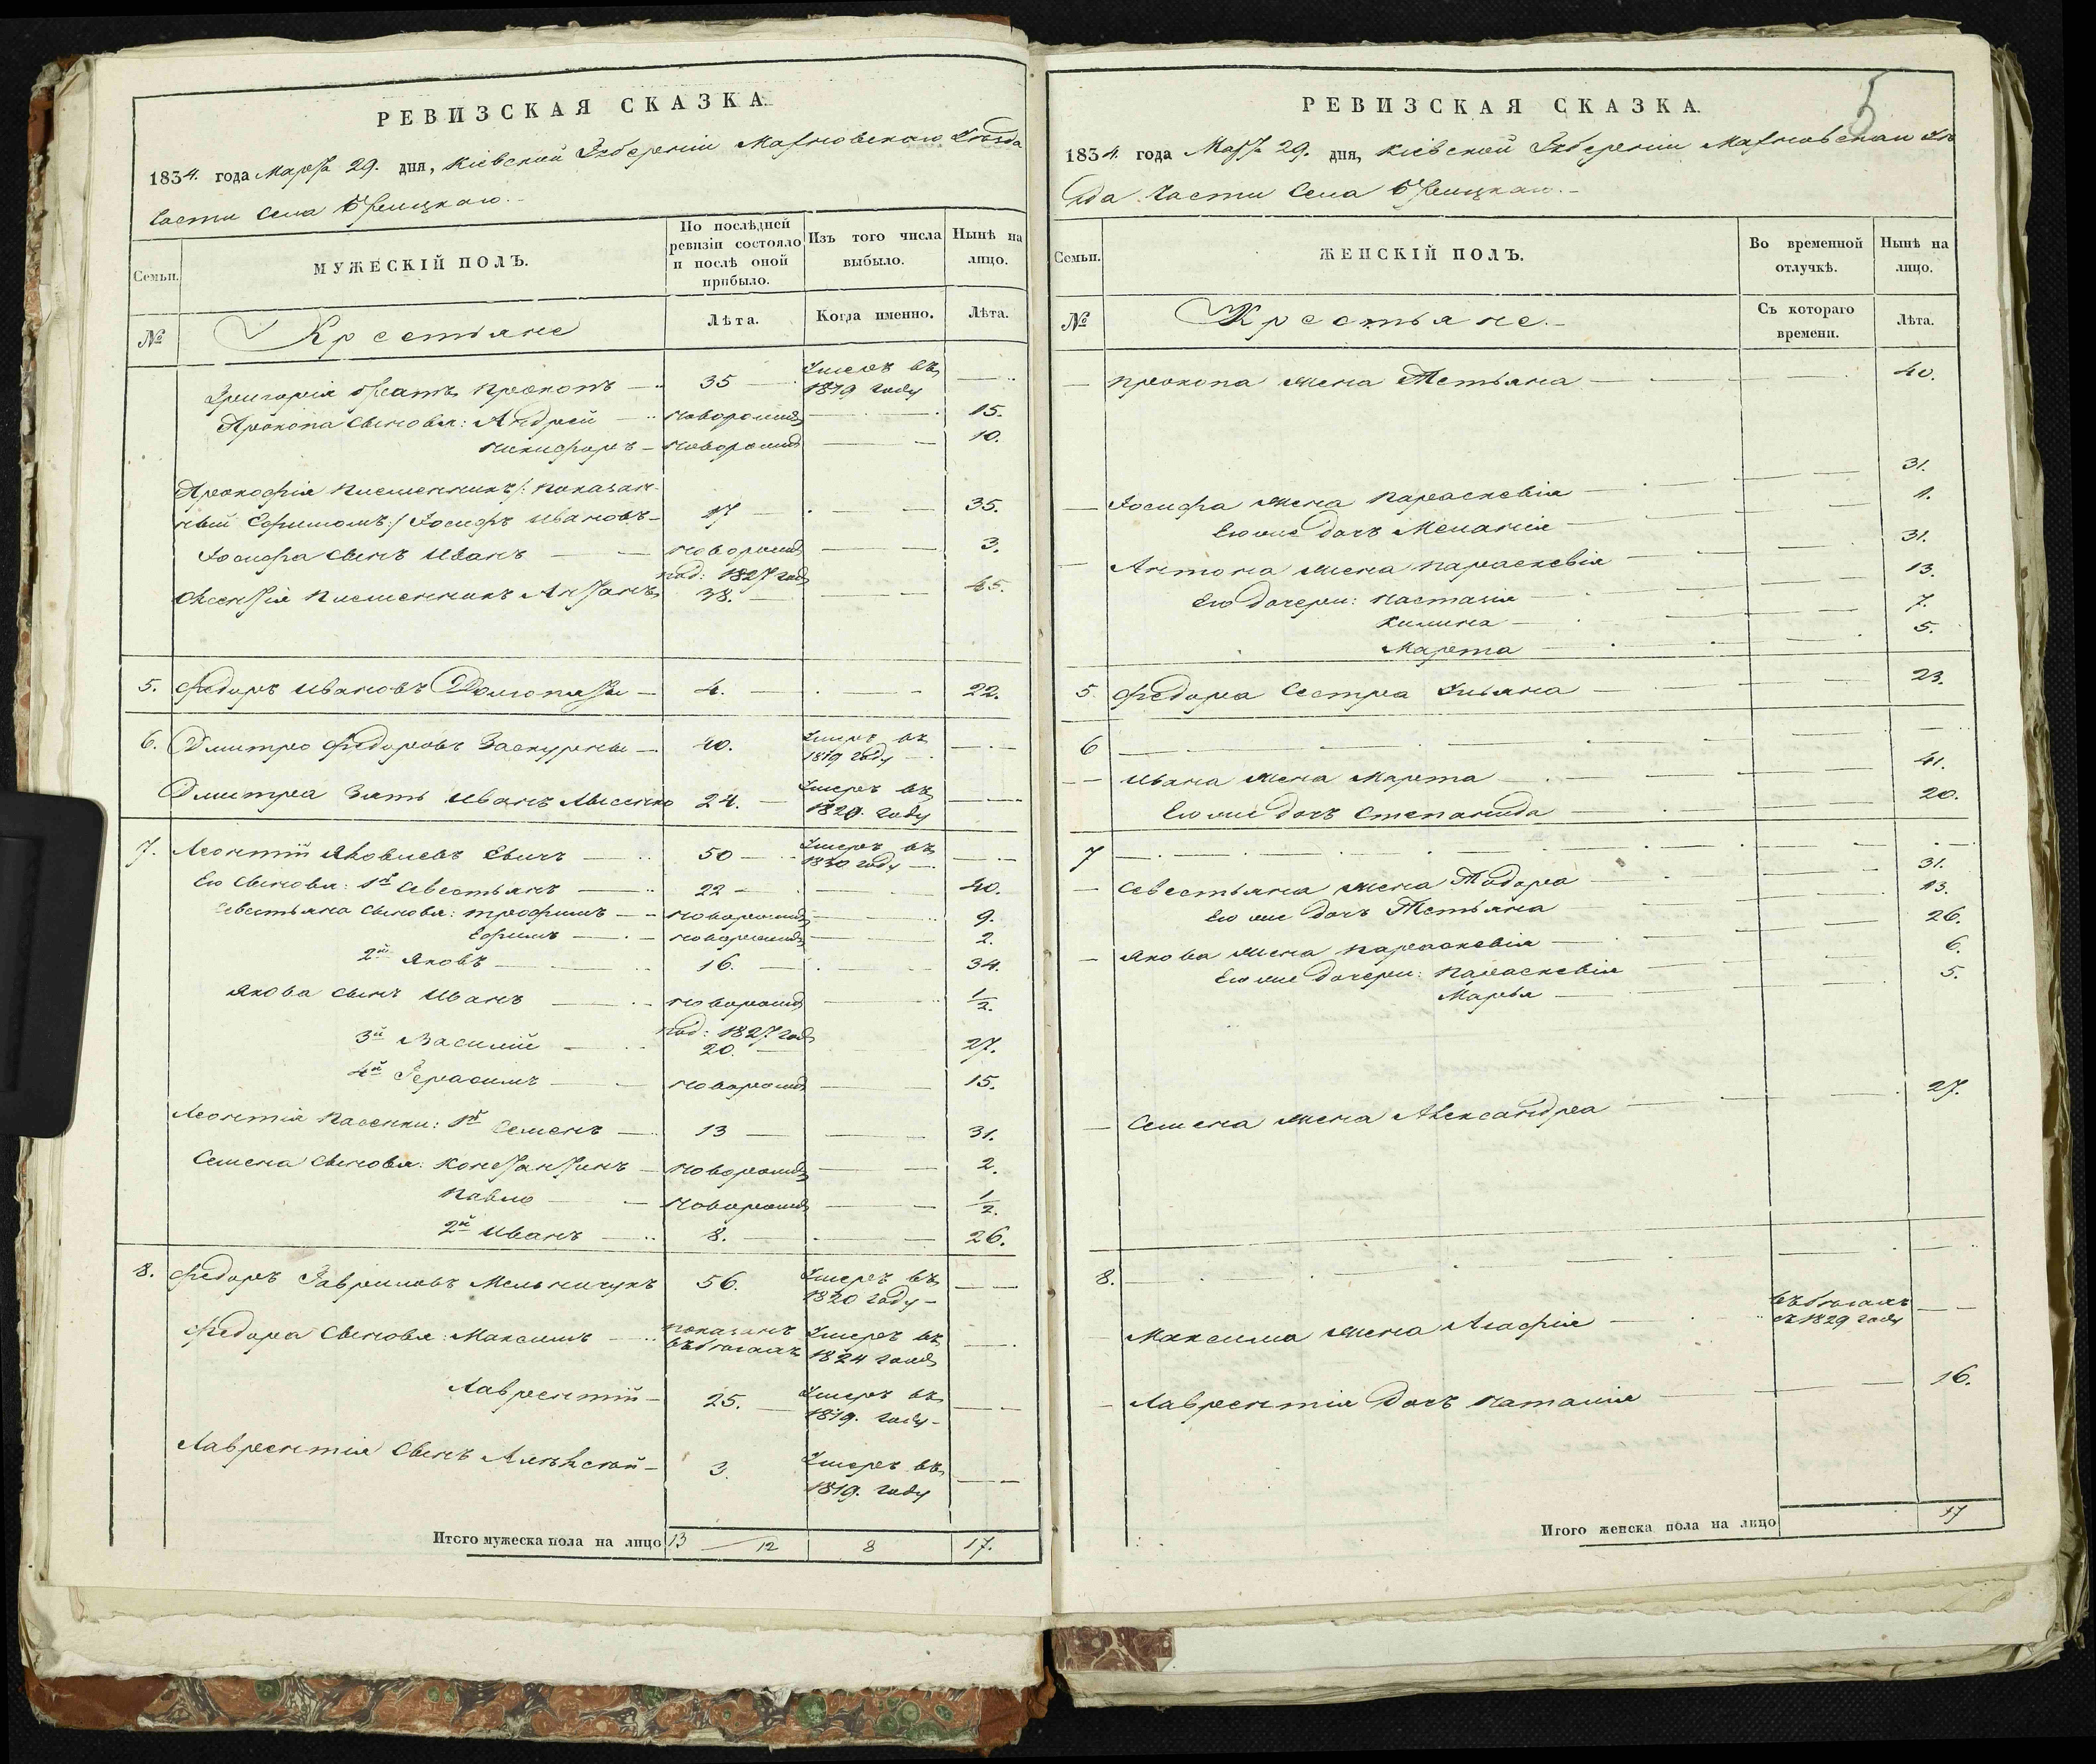 РЕВИЗСКАЯ СКАЗКА.
1834. года Марта 29. дня, Кіевской Губерніи Махновскаго Уѣзда
Части Села
Семьи.
МУЖЕСКІЙ ПОЛЪ.
По послѣдней ревизіи состояло и послѣ оной прибыло.
Изъ того числа выбыло.
Нынѣ на лицо.
№
Крестьяне
Лѣта.
Когда именно.
Лѣта.
Григорія братъ Прокопъ 35 Умеръ въ 1819 году
Прокопа сыновья: Андрей новорожд 15.
Никифоръ новорожд 10.
Прокофія племенникъ /: показан-
ный Ефимомъ :/ Іосифъ Ивановъ 17 35.
Іосифа сынъ Иванъ новорожд 3.
племенникъ Антонъ 1827 38. 45.
5. Федоръ Ивановъ 4. 22.
6. Дмитро Федоровъ 40. Умеръ въ 1819 году
Дмитра зять Иванъ Лысенко 24. Умеръ въ 1829. году
7. Леонтій Яковлевъ 50 Умеръ въ 1830 году
Его сыновья: 1й Севестьянъ 22 40.
Севестьяна сыновья: Трофимъ новорожд 9.
Ефимъ новорожд 2.
2й Яковъ 16. 34.
Якова сынъ Иванъ новорожд 1/2.
3й Василій 1827 20. 27.
4й Герасимъ новорожд 15.
Леонтія пасенки: 1й Семенъ 13 31.
Семена сыновья: Константинъ новорожд 2.
Павло новорожд 1/2.
2й Иванъ 8. 26.
8. Федоръ Гавриловъ Мельничукъ 56. Умеръ въ 1820 году
Федора сыновья: Максимъ показанъ въ бѣгахъ Умеръ въ 1824 году
Лаврентій 25. Умеръ въ 1819. году
Лаврентія сынъ Алексѣй 3. Умеръ въ 1819. году
Итого мужеска пола на лицо 13 12 8 17.
5
РЕВИЗСКАЯ СКАЗКА.
1834. года Марта 29. дня, Кіевской Губерніи Махновскаго Уѣ
зда Части Села
Семьи.
ЖЕНСКІЙ ПОЛЪ.
Во временной отлучкѣ.
Нынѣ на лицо.
№
Крестьяне.
Съ котораго времени.
Лѣта.
Прокопа жена Тетьяна 40.
Іосифа жена Параскевія 31.
Его же дочь Меланія 1.
Антона жена Параскевія 31.
Его дочери: Настасія 13.
Килина 7.
Марта 5.
5. Федора сестра Ульяна 23.
6
Ивана жена Марта 41.
Его же дочь Степанида 20.
7
Севестьяна жена Тодора 31.
Его же дочь Тетьяна 13.
Якова жена Параскевія 26.
Его же дочери: Параскевія 6.
Марья 5.
Семена жена Александра 27.
8.
Максима жена Агафія въ бѣгахъ съ 1829 году
Лаврентія дочь Наталія 16.
Итого женска пола на лицо 17